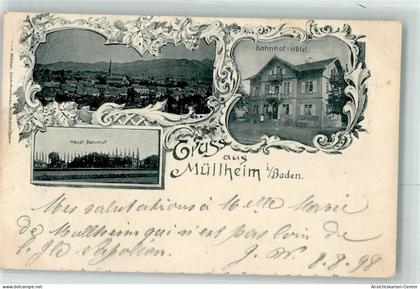 Bahnhof-Hôtel
Haupt-Bahnhof
Gruss
aus
Müllheim i/Baden.
Mes salutations à Melle Marie
de Mullheim qui n'est pas loin de
l'
J. W. 8.8.98
Ansichtskarten-Center